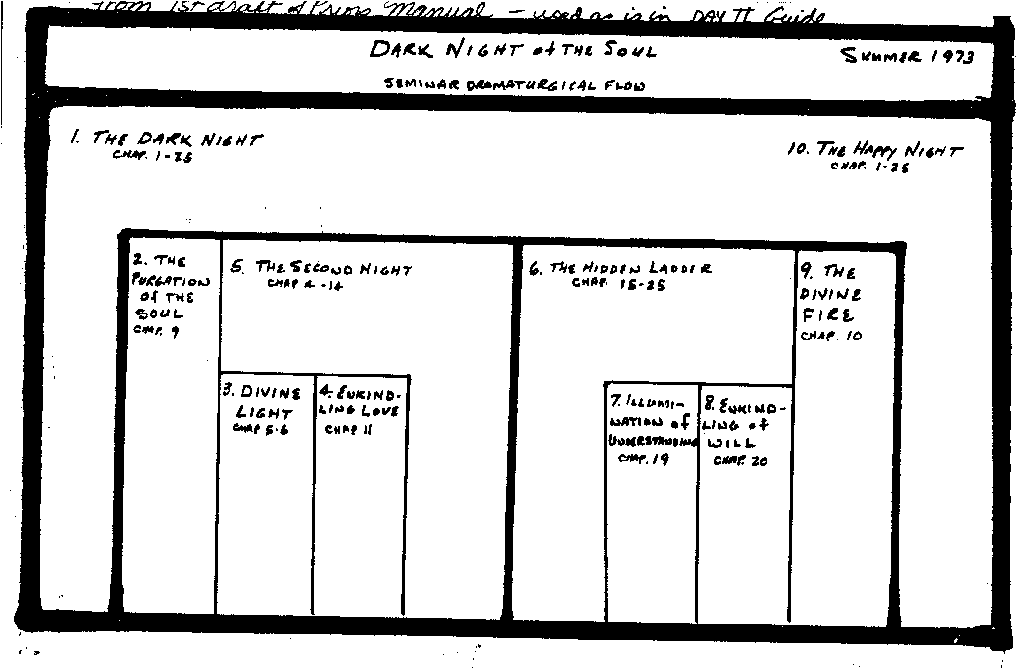 from 1st draft of Priors Manual - used as is in DAY II Guide
DARK NIGHT of THE SOUL
SUMMER 1973
SEMINAR DRAMATURGICAL FLOW
1. THE DARK NIGHT
CHAP. 1-25
10. THE HAPPY NIGHT
CHAP. 1-25
2. THE
PURGATION
of THE
SOUL
CHAP. 9
5. THE SECOND NIGHT
CHAP 4-14
6. THE HIDDEN LADDER
CHAP. 15-25
9. THE
DIVINE
FIRE
CHAP. 10
3. DIVINE
LIGHT
CHAP 5-6
4. ENKIND-
LING LOVE
CHAP 11
7. ILLUMI-
NATION of
UNDERSTANDING
CHAP. 19
8. ENKIND-
LING of
WILL
CHAP. 20